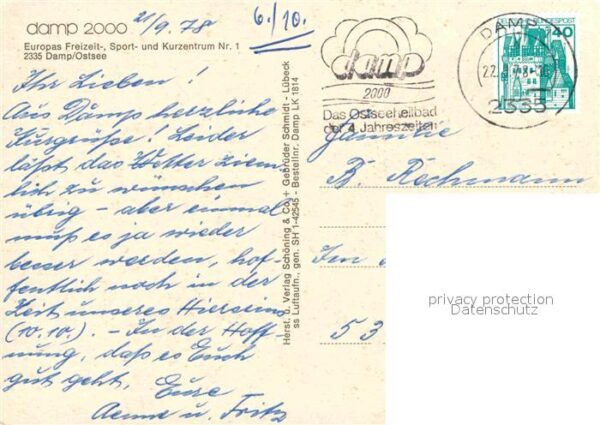 damp 2000
21/9.78
6./10.
Europas Freizeit-, Sport- und Kurzentrum Nr. 1
2335 Damp/Ostsee
Ihr Lieben!
Aus Damp herzliche
Urgrüße! Leider
läßt das Wetter ziem-
lich zu wünschen
übrig - aber einmal
muß es ja wieder
besser werden, hof-
fentlich noch in der
Zeit unseres Hierseins
(10.10.). - In der Hoff-
nung, daß es Euch
gut geht, Eure
Aenne u. Fritz
Herst. u. Verlag Schöning & Co. + Gebrüder Schmidt - Lübeck
ss Luftaufn., gen. SH 1-42545 - Bestellnr. Damp LK 1814
damp
2000
Das Ostseeheilbad
der 4 Jahreszeiten
DAMP
2335
DEUTSCHE BUNDESPOST
40
Familie
B. Rechmann
Im
53
privacy protection
Datenschutz